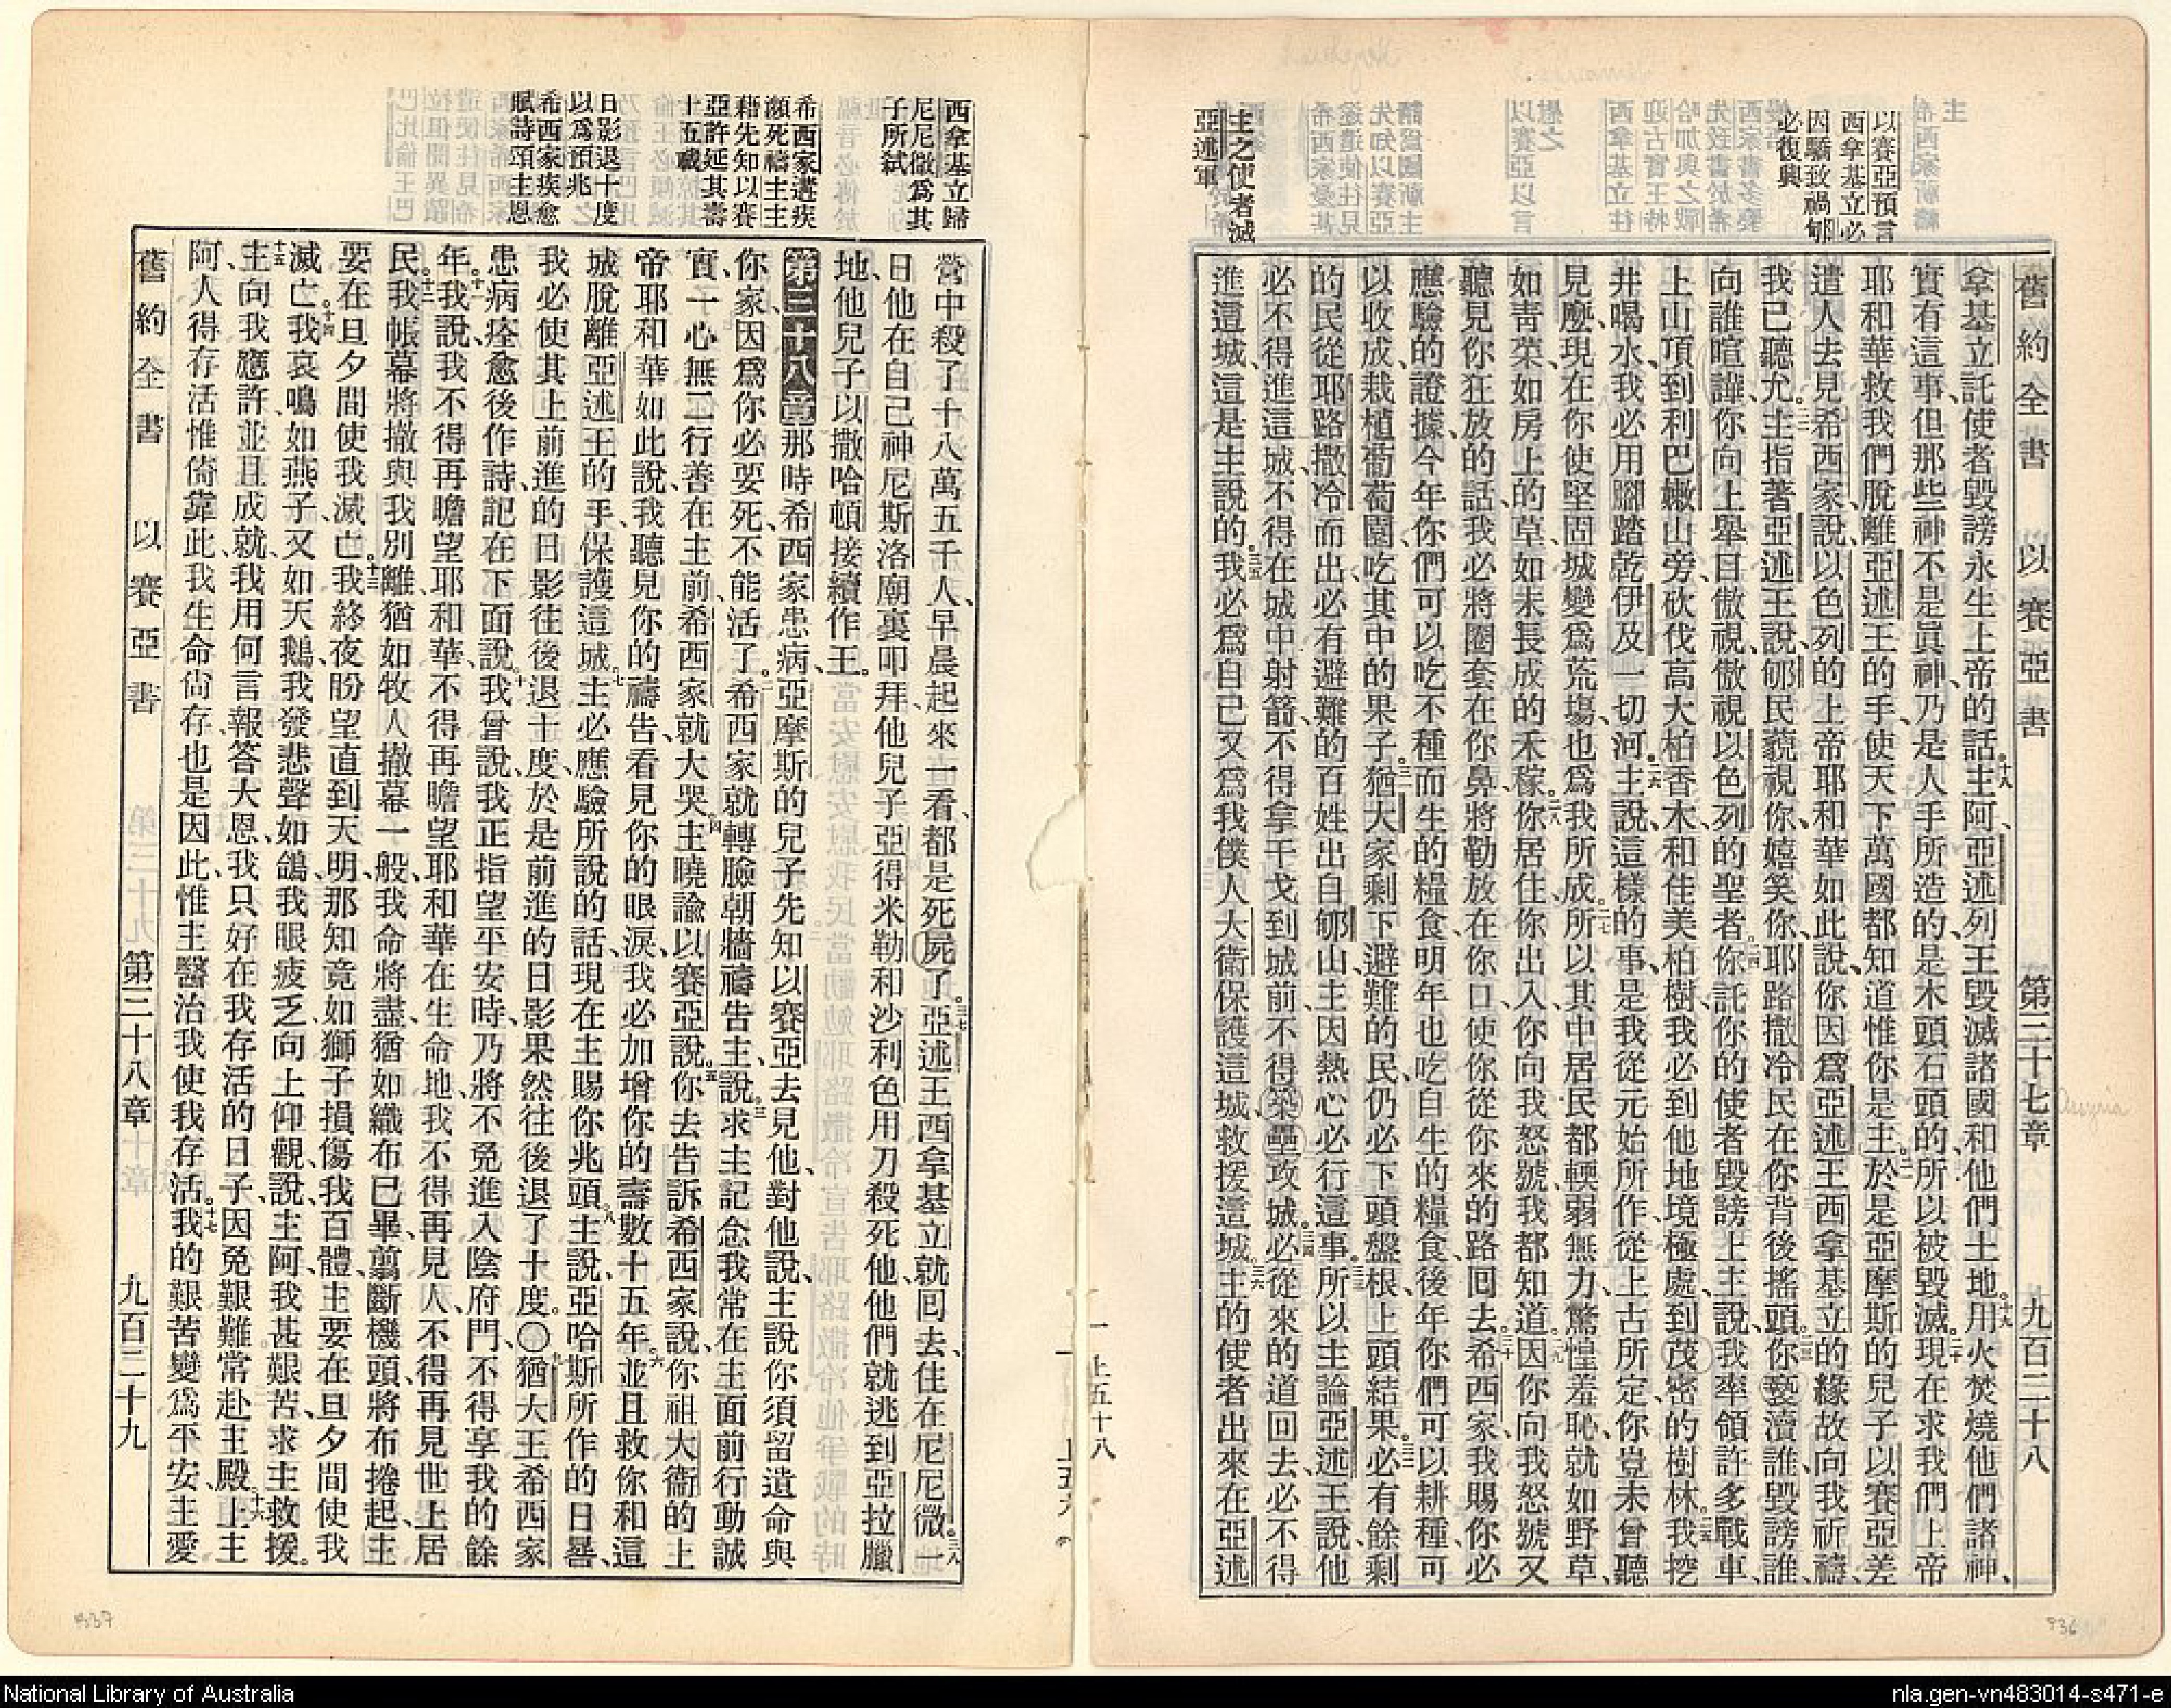 以賽亞預言
西拿基立必
因驕致禍郇
必復興
主之使者滅
亞述軍
舊約全書 以賽亞書 第三十七章 九百三十八
拿基立託使者毀謗永生上帝、的話。十八主阿、亞述列王毀滅諸國和他們土地。十九用火焚燒他們諸神、
實有這事、但那些神不是眞神、乃是人手所造的、是木頭石頭的、所以被毀滅。二十現在求我們上帝
耶和華救我們脫離亞述王的手、使天下萬國都知道惟你是主。二一於是亞摩斯的兒子以賽亞差
遣人去見希西家說、以色列的上帝耶和華如此說、你因爲亞述王西拿基立的緣故向我祈禱、
我已聽允。二二主指著亞述王說、郇民藐視你、嬉笑你、耶路撒冷民在你背後搖頭。二三你褻瀆誰、毀謗誰、
向誰喧譁、你向上舉目傲視、傲視以色列的聖者。二四你託你的使者毀謗上主說、我率領許多戰車、
上山頂、到利巴嫩山旁、砍伐高大柏香木、和佳美柏樹、我必到他地境極處、到茂密的樹林。二五我挖
井喝水、我必用腳踏乾伊及一切河。二六主說、這樣的事、是我從元始所作、從上古所定、你豈未曾聽
見麼、現在你使堅固城變爲荒塲、也爲我所成。二七所以其中居民都輭弱無力、驚惶羞恥、就如野草、
如靑菜、如房上的草、如未長成的禾稼。二八你居住、你出入、你向我怒號、我都知道。二九因你向我怒號、又
聽見你狂放的話、我必將圈套在你鼻、將勒放在你口、使你從你來的路回去。三十希西家、我賜你必
應驗的證據、今年你們可以吃不種而生的糧食、明年也吃自生的糧食、後年你們可以耕種、可
以收成、栽植葡萄園、吃其中的果子。三一猶大家剩下避難的民、仍必下頭盤根、上頭結果。三二必有餘剩
的民從耶路撒冷而出、必有避難的百姓出自郇山、主因熱心必行這事。三三所以主論亞述王說、他
必不得進這城、不得在城中射箭、不得拿干戈到城前、不得築壘攻城。三四必從來的道回去、必不得
進這城、這是主說的。三五我必爲自己又爲我僕人大衛保護這城、救援這城。三六主的使者出來、在亞述
一 上五十八
西拿基立歸
尼尼微爲其
子所弒
希西家遘疾
瀕死禱主主
藉先知以賽
亞許延其壽
十五歲
日影退十度
以爲預兆
希西家疾愈
賦詩頌主恩
營中殺了十八萬五千人、早晨起來一看、都是死屍了。三七亞述王西拿基立就回去、住在尼尼微。三八一
日他在自己神尼斯洛廟裏叩拜、他兒子亞得米勒和沙利色用刀殺死他、他們就逃到亞拉臘
地、他兒子以撒哈頓接續作王。
第三十八章 那時希西家患病、亞摩斯的兒子先知以賽亞去見他、對他說、主說你須留遺命與
你家、因爲你必要死、不能活了。二希西家就轉臉朝牆禱告主、說。三求主記念我常在主面前行動誠
實、一心無二、行善在主前、希西家就大哭。四主曉諭以賽亞說。五你去告訴希西家說、你祖大衞的上
帝耶和華如此說、我聽見你的禱告、看見你的眼淚、我必加增你的壽數十五年。六並且救你和這
城脫離亞述王的手、保護這城。七主必應驗所說的話、現在主賜你兆頭。八主說、亞哈斯所作的日晷、
我必使其上前進的日影往後退十度、於是前進的日影果然往後退了十度。〇九猶大王希西家
患病痊愈後作詩、記在下面說。十我曾說、我正指望平安時、乃將不免進入陰府門、不得享我的餘
年。十一我說、我不得再瞻望耶和華、不得再瞻望耶和華在生命地、我不得再見人、不得再見世上居
民。十二我帳幕將撤與我別離、猶如牧人撤幕一般、我命將盡、猶如織布已畢、翦斷機頭、將布捲起、主
要在旦夕間使我滅亡。十三我終夜盼望直到天明、那知竟如獅子損傷我百體、主要在旦夕間使我
滅亡。十四我哀鳴如燕子、又如天鵝、我發悲聲如鴿、我眼疲乏向上仰觀、說、主阿、我甚艱苦、求主救援。
十五主向我應許、並且成就、我用何言報答大恩、我只好在我存活的日子、因免艱難、常赴主殿上。十六主
阿、人得存活惟倚靠此、我生命尙存、也是因此、惟主醫治我使我存活。十七我的艱苦變爲平安、主愛
舊約全書 以賽亞書 第三十八章 九百三十九
937
936
National Library of Australia
nla.gen-vn483014-s471-e